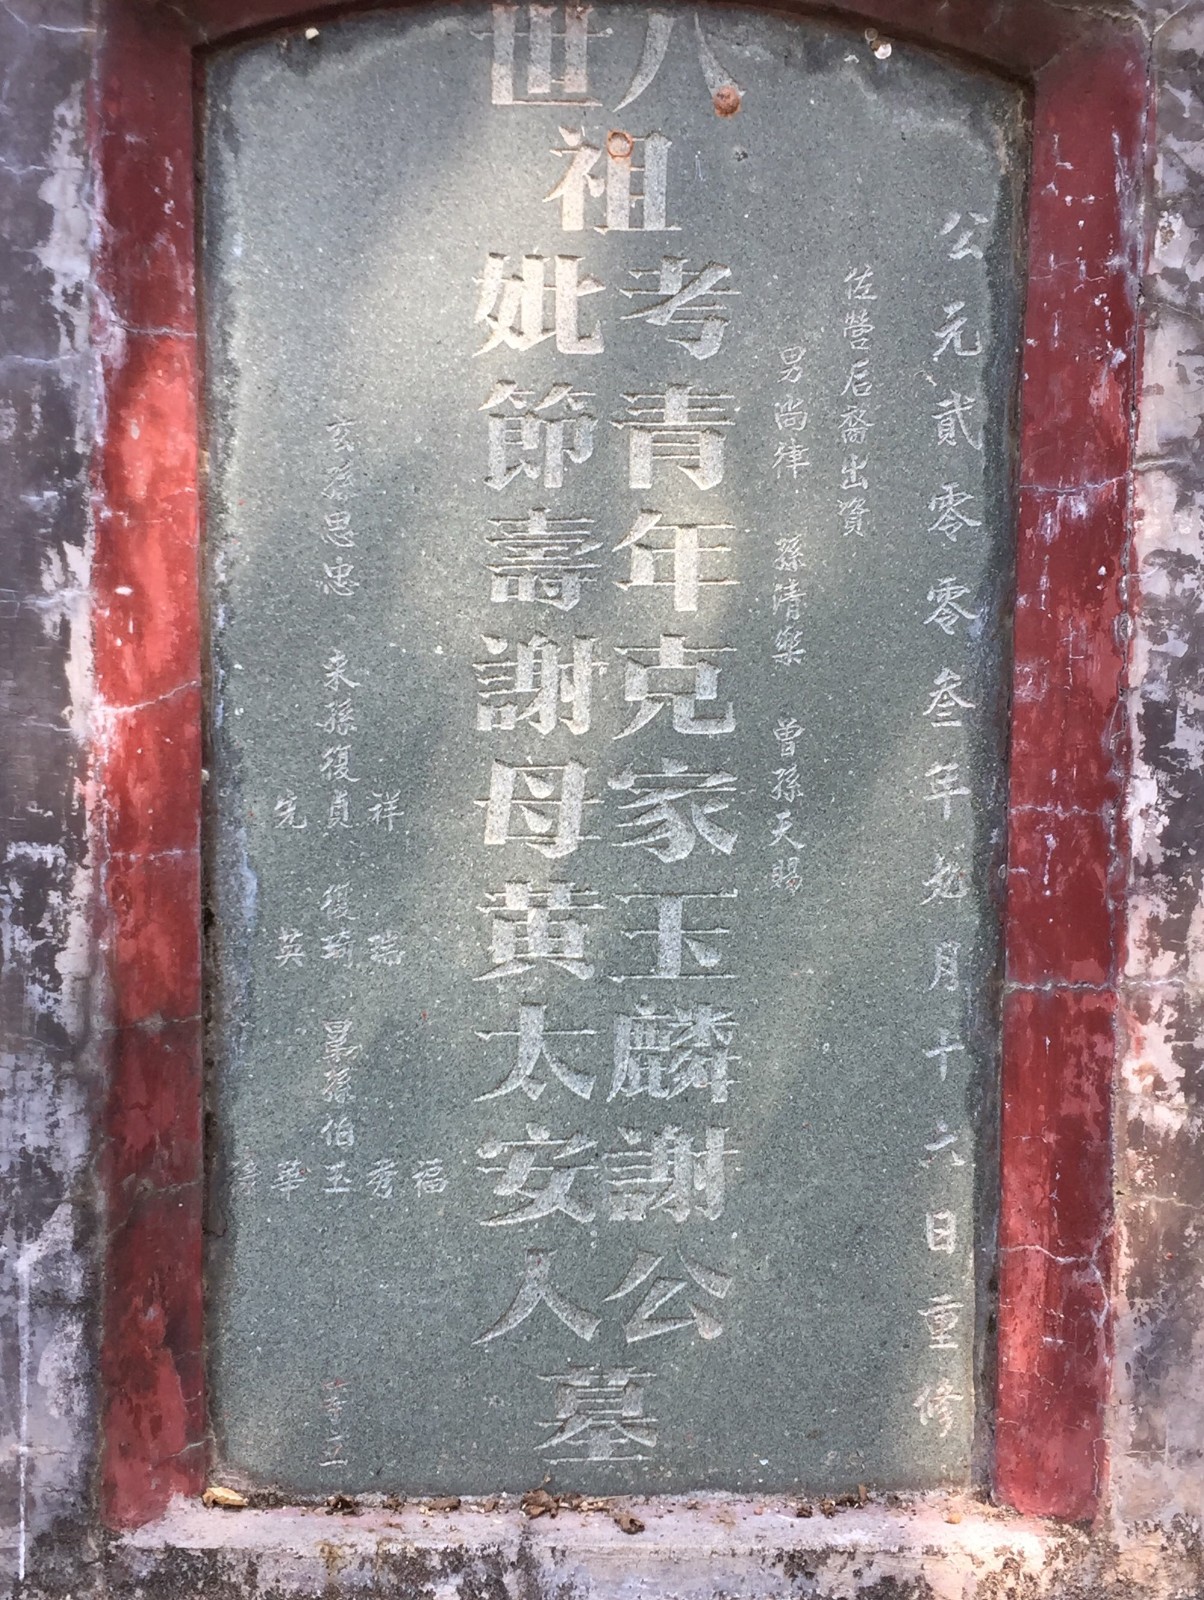 公元貳零零叁年九月十六日重修
佐營后裔出資
男尚律 孫清樂 曾孫天賜
八世
祖
考青年克家玉麟謝公
妣節壽謝母黄太安人
墓
祥 瑞 福
秀
玄孫思忠 来孫復貞 復 晜孫伯玉 立
先 英 華